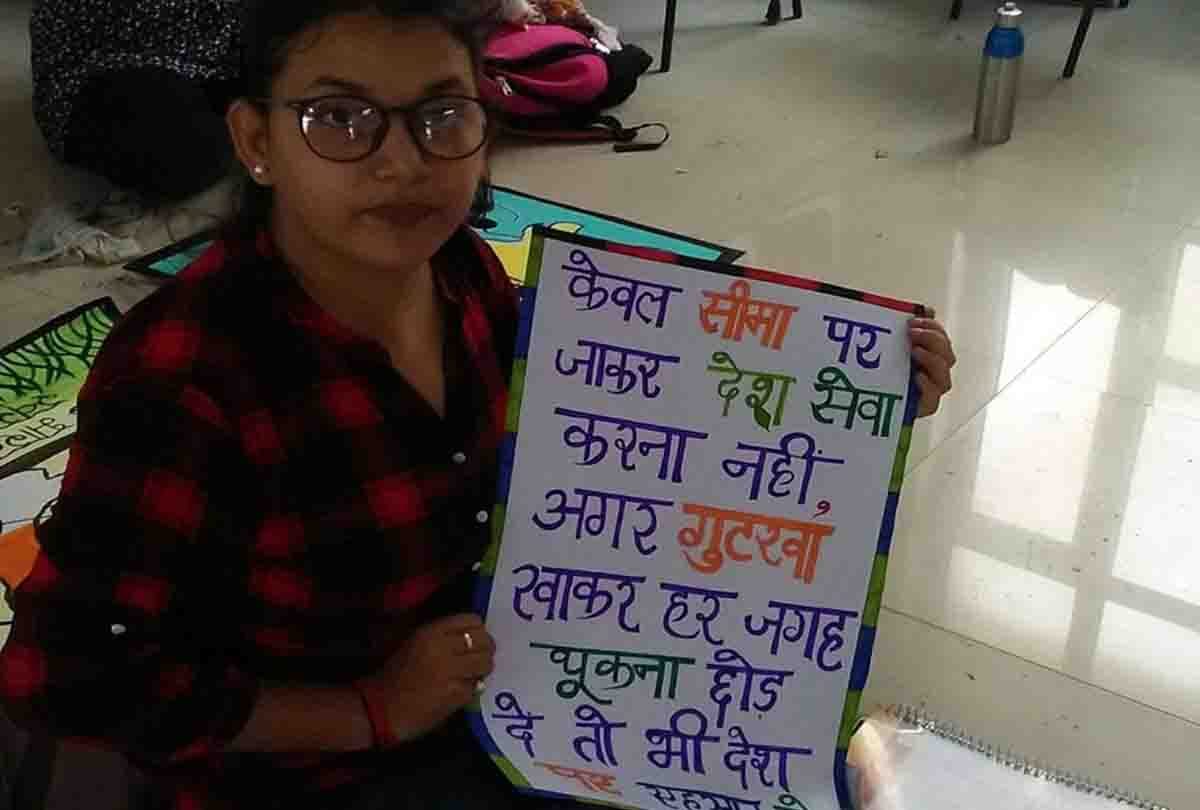 केवल सीमा पर
जाकर देश सेवा
करना नहीं,
अगर गुटखा
खाकर हर जगह
थूकना छोड़
दे तो भी देश
पर एहसान